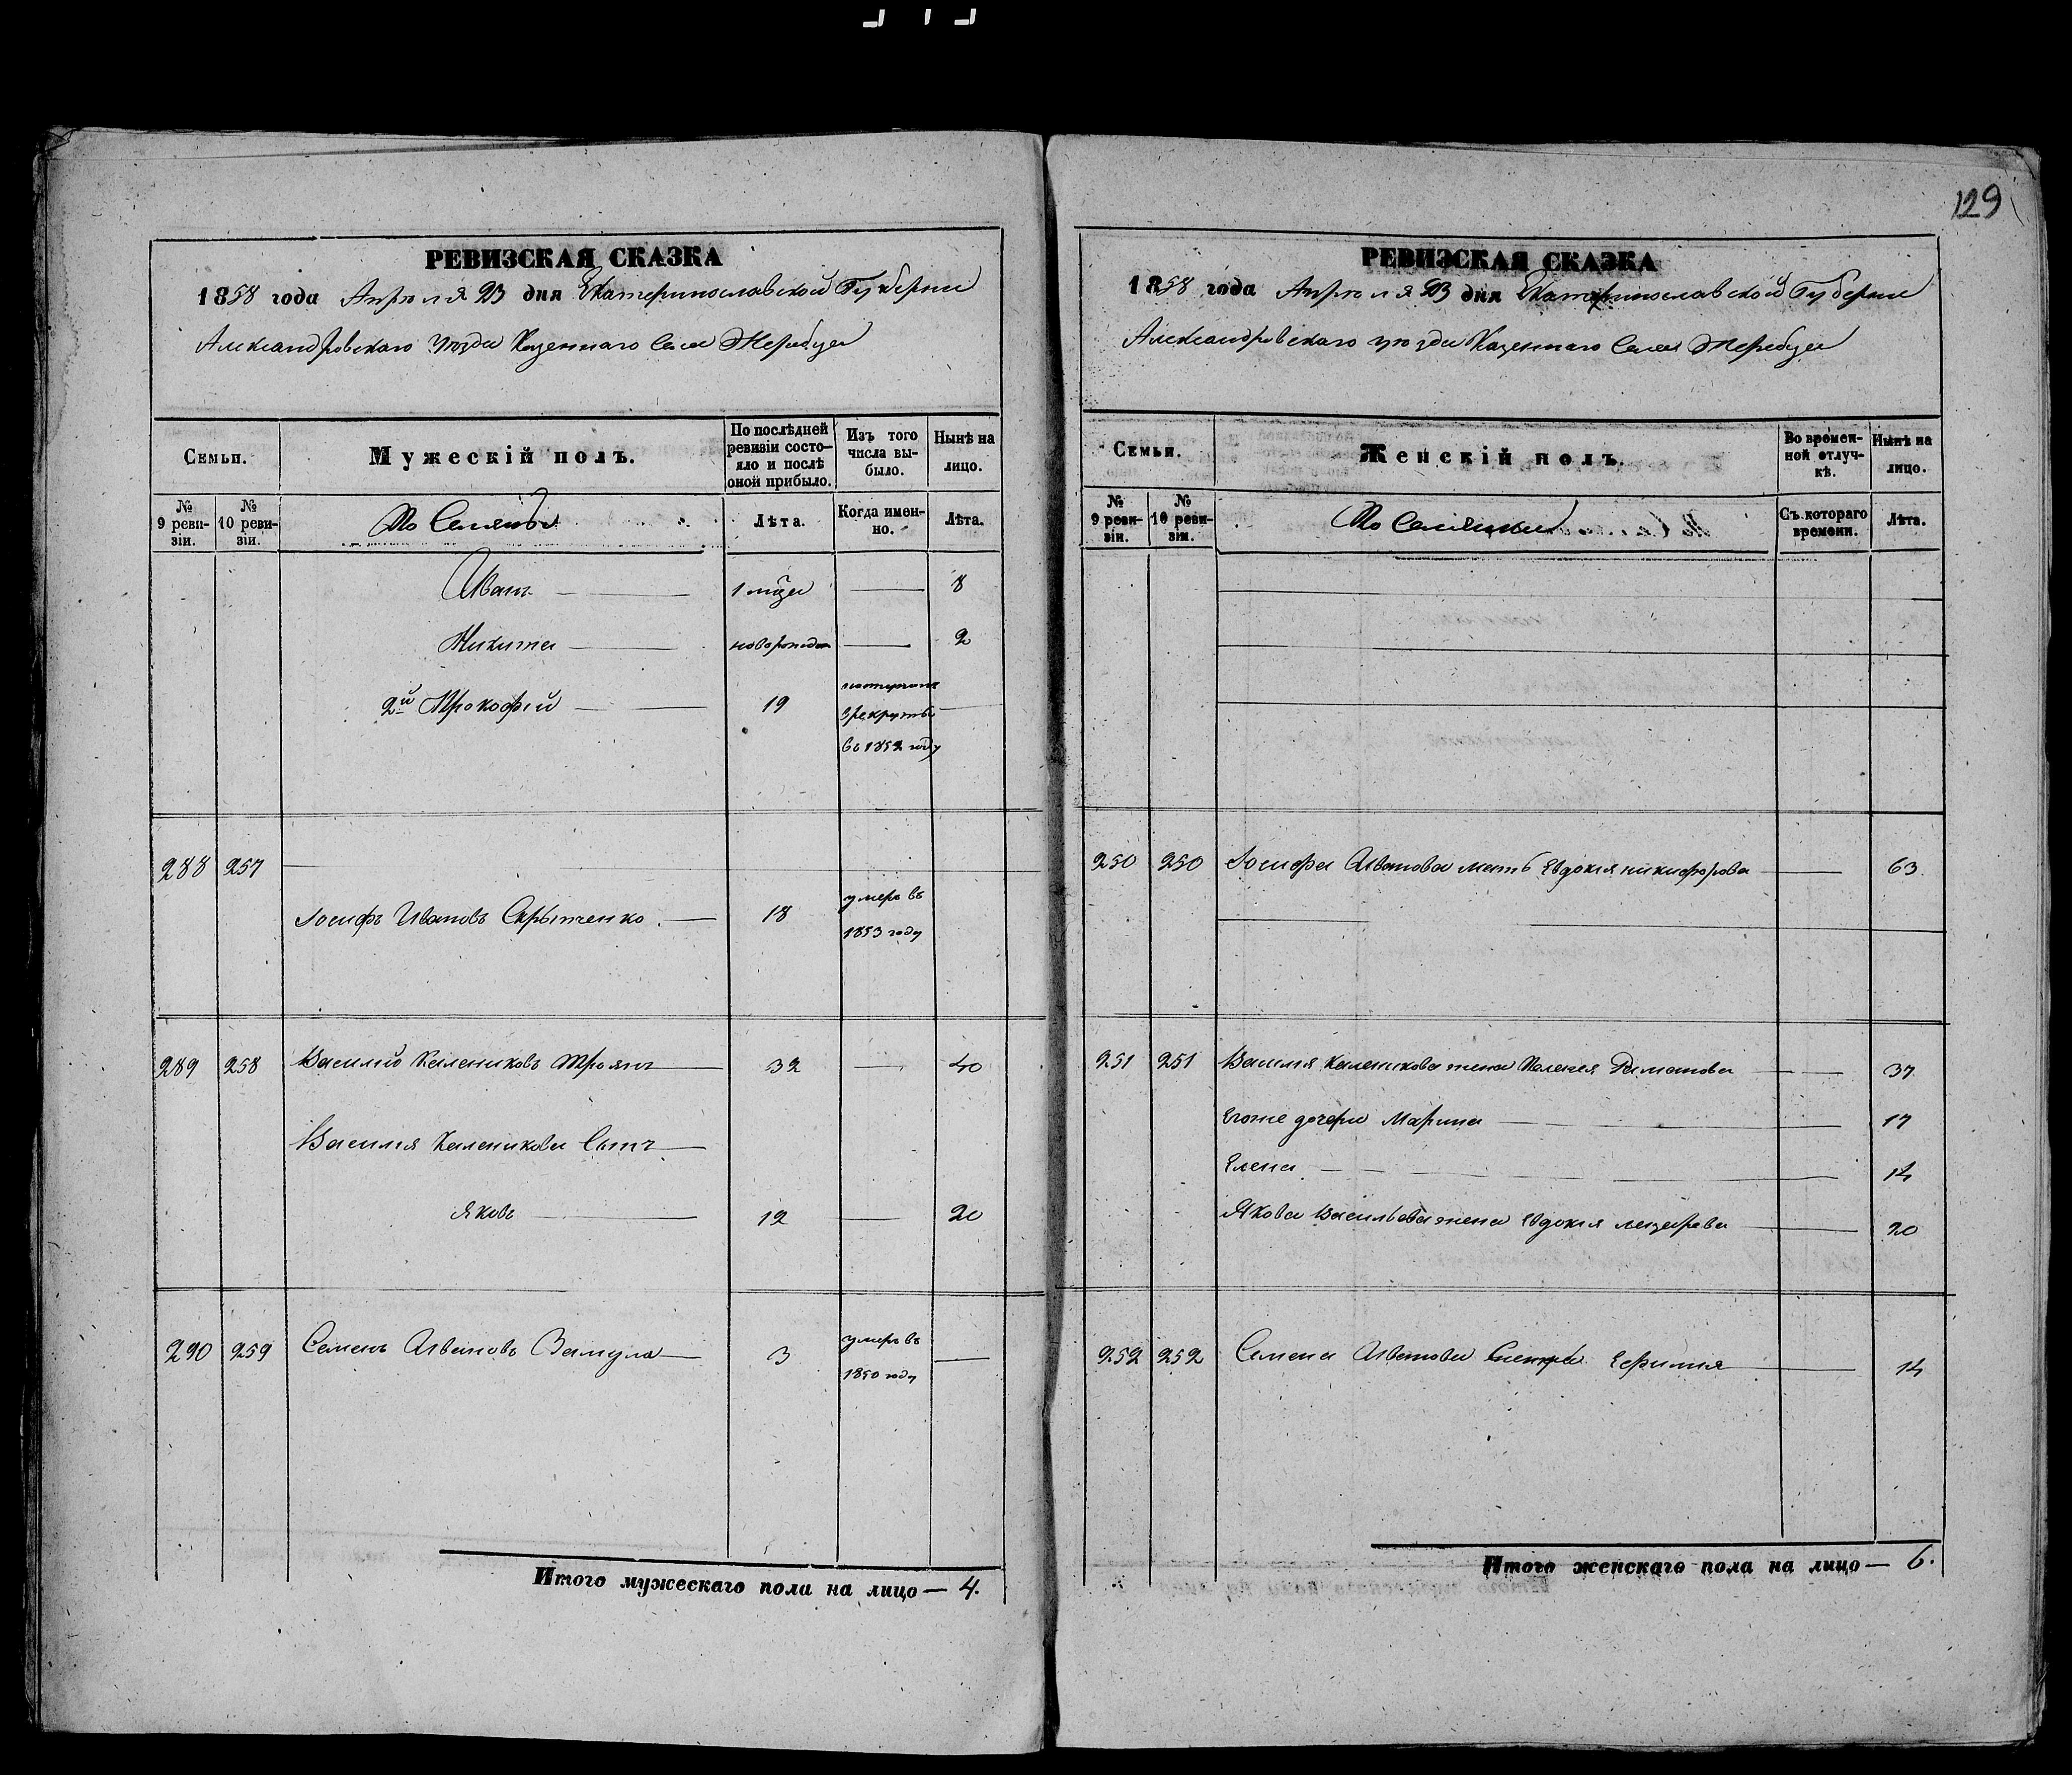 129
РЕВИЗСКАЯ СКАЗКА
1858 года Апреля 23 дня Екатеринославской Губернии
Александровскаго уезда Казеннаго Села Жеребца
Семьи.
Мужескій полъ.
По послѣдней ревизіи состояло и послѣ оной прибыло.
Изъ того числа выбыло.
Нынѣ на лицо.
№ 9 ревизіи.
№ 10 ревизіи.
Лѣта.
Когда именно.
Лѣта.
Иванъ 1 мца 8
Никита новорожден 2
2й Прокофій 19
в рекруты
во 1852 году
288 257
Іосифъ Ивановъ 18 умеръ въ
1853 году
289 258 Василій Калениковъ Троянъ 32 40
Василія Каленикова Сынъ
Яковъ 12 20
290 259 Семенъ Ивановъ 3 умеръ въ
1850 году
Итого мужескаго пола на лицо — 4.
РЕВИЗСКАЯ СКАЗКА
1858 года Апреля 23 дня Екатеринославской Губернии
Александровскаго уезда Казеннаго Села Жеребца
Семьи.
Женскій полъ.
Во временной отлучкѣ.
Нынѣ на лицо.
№ 9 ревизіи.
№ 10 ревизіи.
Съ котораго времени.
Лѣта.
250 250 Іосифа Иванова мать Евдокия никифорова 63
251 251 Василия Каленикова жена 37
Егоже дочери Марина 17
Елена 14
Якова Васильева жена Евдокия лазарева 20
252 252 Семена Иванова сестра Ефимия 14
Итого женскаго пола на лицо — 6.